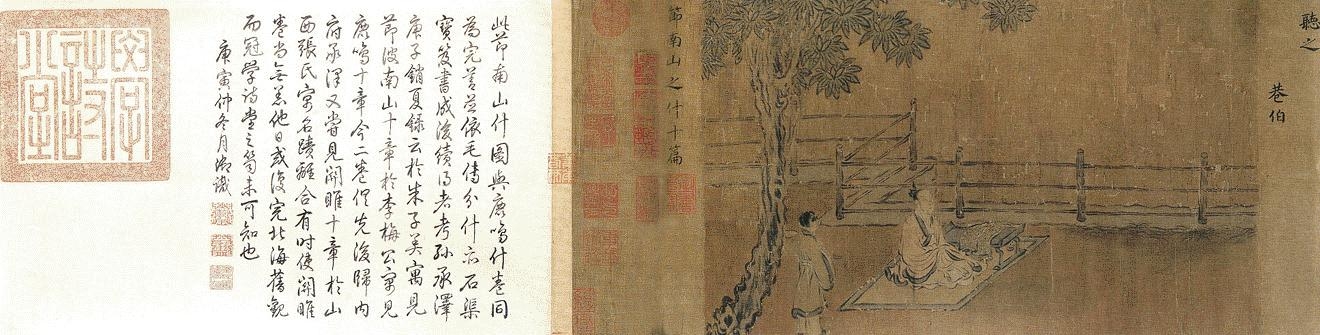 聽之
巷伯
節南山之什十篇
此節南山什圖與鹿鳴什卷同
為完善並依毛傳分什亦石渠
寶笈書成後續得者考孫承澤
庚子銷夏錄云於朱子美寓見
節彼南山十章於李梅公寓見
鹿鳴十章今二卷俱先後歸內
府承澤又嘗見關雎十章於山
西張氏寓名蹟離合有時使關雎
卷尚無恙他日或復完北海舊觀
而冠學詩堂之笥未可知也
庚寅仲冬月御識
學詩堂